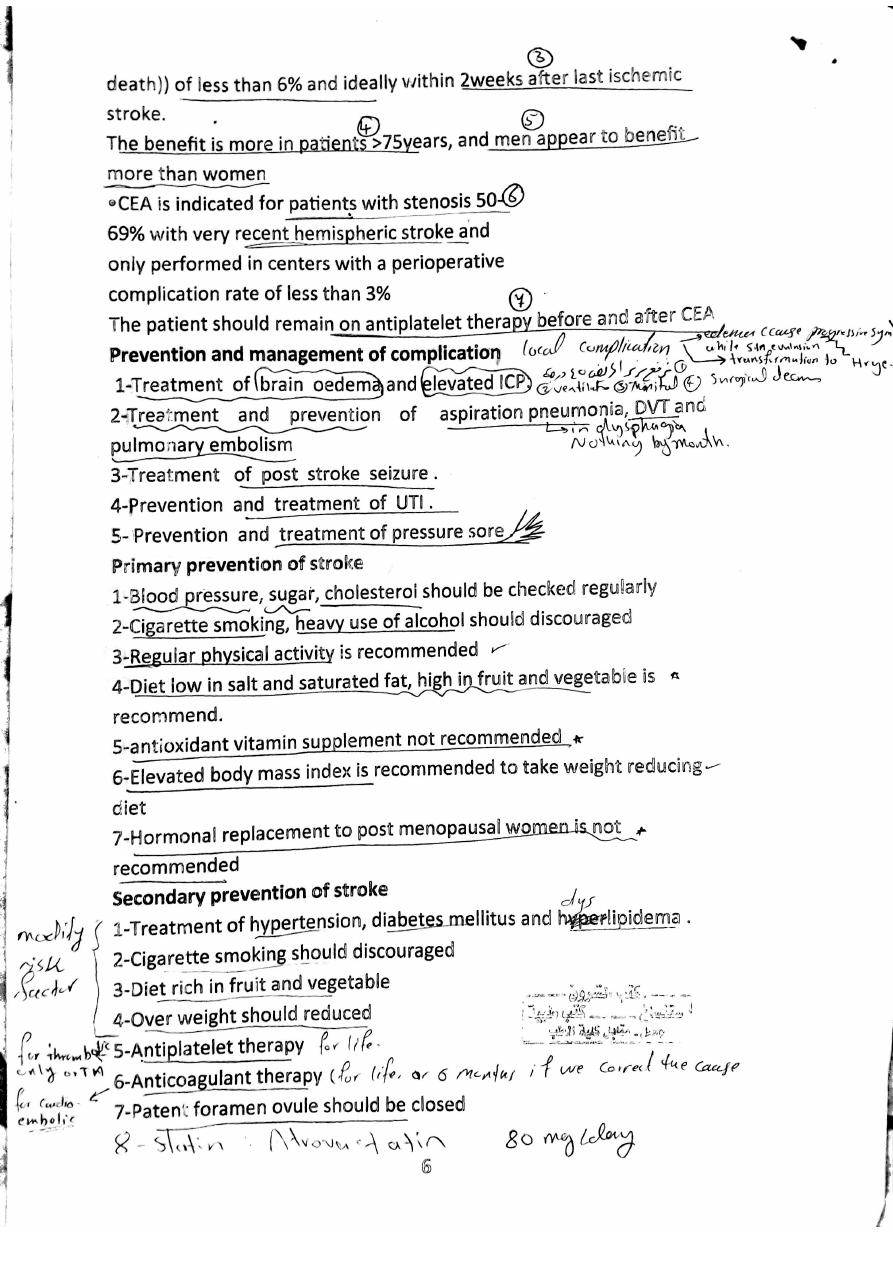 ③
death)) of less than 6% and ideally within 2weeks after last ischemic
stroke.
④ ⑤
The benefit is more in patients >75years, and men appear to benefit
more than women
•CEA is indicated for patients with stenosis 50-⑥
69% with very recent hemispheric stroke and
only performed in centers with a perioperative
complication rate of less than 3%
⑦
The patient should remain on antiplatelet therapy before and after CEA
Prevention and management of complication local complication
edema (cause progressive sym
while stn evulsion
transformation to Hrge.
1-Treatment of brain oedema and elevated ICP ①
② ventilat ③ Manitol ④ Surgical decom
2-Treatment and prevention of aspiration pneumonia, DVT and
in dysphagia
pulmonary embolism Nothing by mouth.
3-Treatment of post stroke seizure .
4-Prevention and treatment of UTI .
5- Prevention and treatment of pressure sore
Primary prevention of stroke
1-Blood pressure, sugar, cholesterol should be checked regularly
2-Cigarette smoking, heavy use of alcohol should discouraged
3-Regular physical activity is recommended
4-Diet low in salt and saturated fat, high in fruit and vegetable is
recommend.
5-antioxidant vitamin supplement not recommended
6-Elevated body mass index is recommended to take weight reducing
diet
7-Hormonal replacement to post menopausal women is not
recommended
Secondary prevention of stroke
dys
1-Treatment of hypertension, diabetes mellitus and hyperlipidema .
modify
risk
factor
2-Cigarette smoking should discouraged
3-Diet rich in fruit and vegetable
4-Over weight should reduced
for thrombotic
only or TIA
5-Antiplatelet therapy for life.
6-Anticoagulant therapy (for life. or 6 months if we correct the cause
for Cardio-
embolic
7-Patent foramen ovule should be closed
8-Statin : Atrovastatin 80 mg/day
6